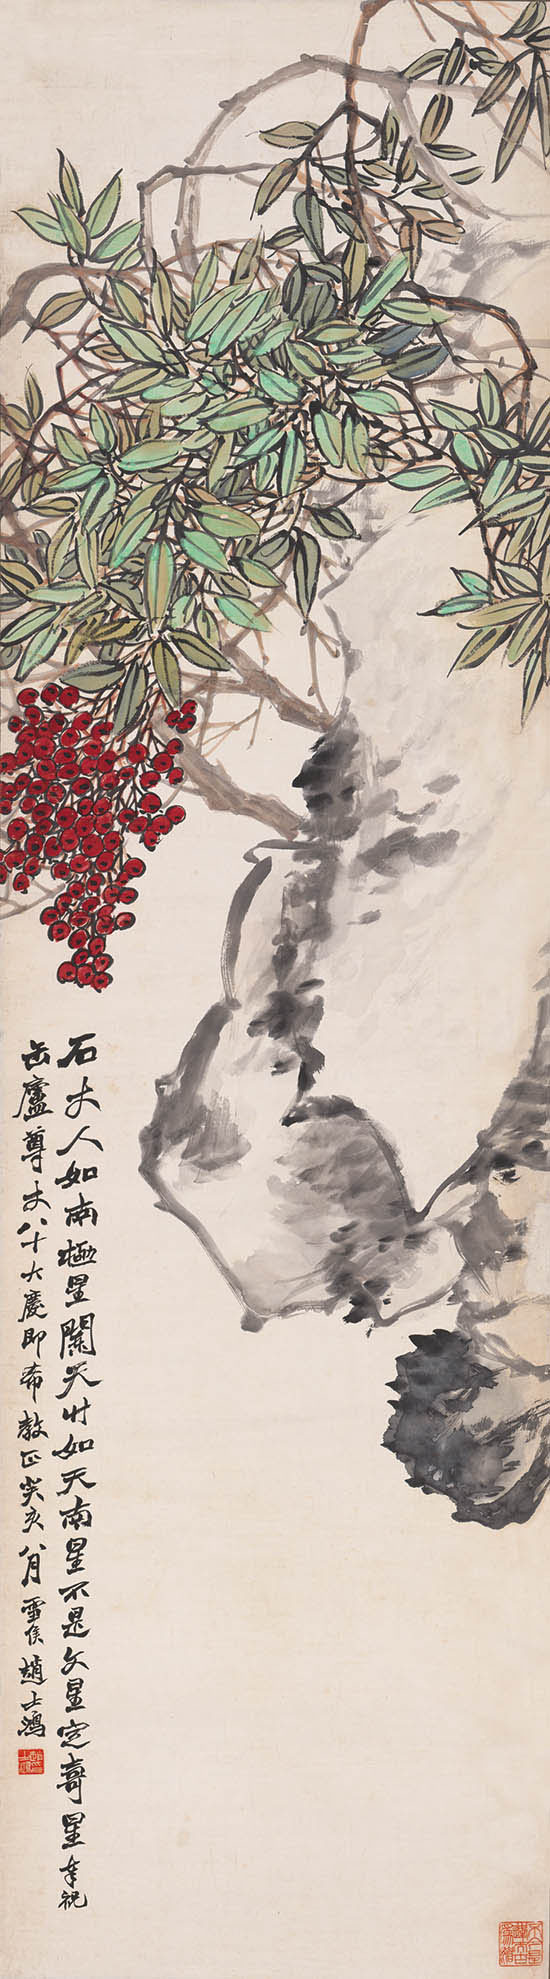 石丈人如南極星闌天竹如天南星不是文星定壽星奉祝
缶廬尊丈八十大慶即希教正癸亥八月雪侯趙士鴻